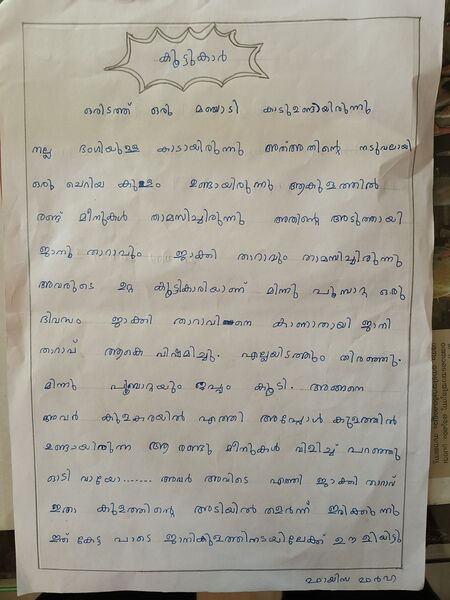 കൂട്ടുകാർ
ഒരിടത്ത് ഒരു മഞ്ചാടി കാടുണ്ടായിരുന്നു
നല്ല ഭംഗിയുള്ള കാടായിരുന്നു അത്അതിന്റെ നടുവലായി
ഒരു ചെറിയ കുളം ഉണ്ടായിരുന്നു ആകുളത്തിൽ
രണ്ട് മീനുകൾ താമസിച്ചിരുന്നു അതിന്റെ അടുത്തായി
ജാനു താറാവും ജാക്കി താറാവും താമസിച്ചിരുന്നു
അവരുടെ ഉറ്റ കൂട്ടികാരിയാണ് മിന്നു പൂമ്പാറ്റ ഒരു
ദിവസം ജാക്കി താറാവിനെ കാണാതായി ജാനി
താറാവ് ആകെ വിഷമിച്ചു. എല്ലയിടത്തും തിരഞ്ഞു.
മിന്നു പൂമ്പാറ്റയും ഒപ്പം കൂടി. അങ്ങനെ
അവർ കുളകരയിൽ എത്തി അപ്പോൾ കുളത്തിൽ
ഉണ്ടായിരുന്ന ആ രണ്ടു മീനുകൾ വിളിച്ച് പറഞ്ഞു
ഓടി വായോ....... അവർ അവിടെ എത്തി ജാക്കി താറാവ്
ഇതാ കുളത്തിന്റെ അടിയിൽ തളർന്ന് ഇരിക്കുന്നു
ഇത് കേട്ട പാടെ ജാനികുളത്തിനടയിലേക്ക് ഊളിയിട്ടു